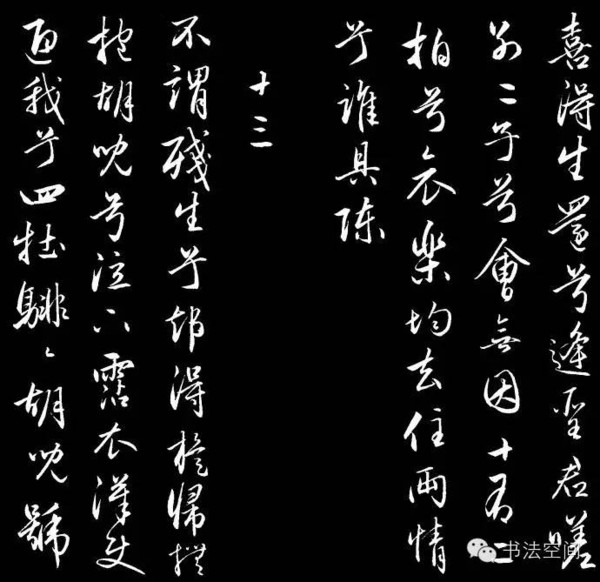 喜得生還兮逢聖君嗟
別二子兮會無因十有二
拍兮哀樂均去住兩情
兮誰具陳
十三
不謂殘生兮却得旋歸撫
抱胡兒兮泣下霑衣漢使
迎我兮四牡騑〻胡兒號
书法空间